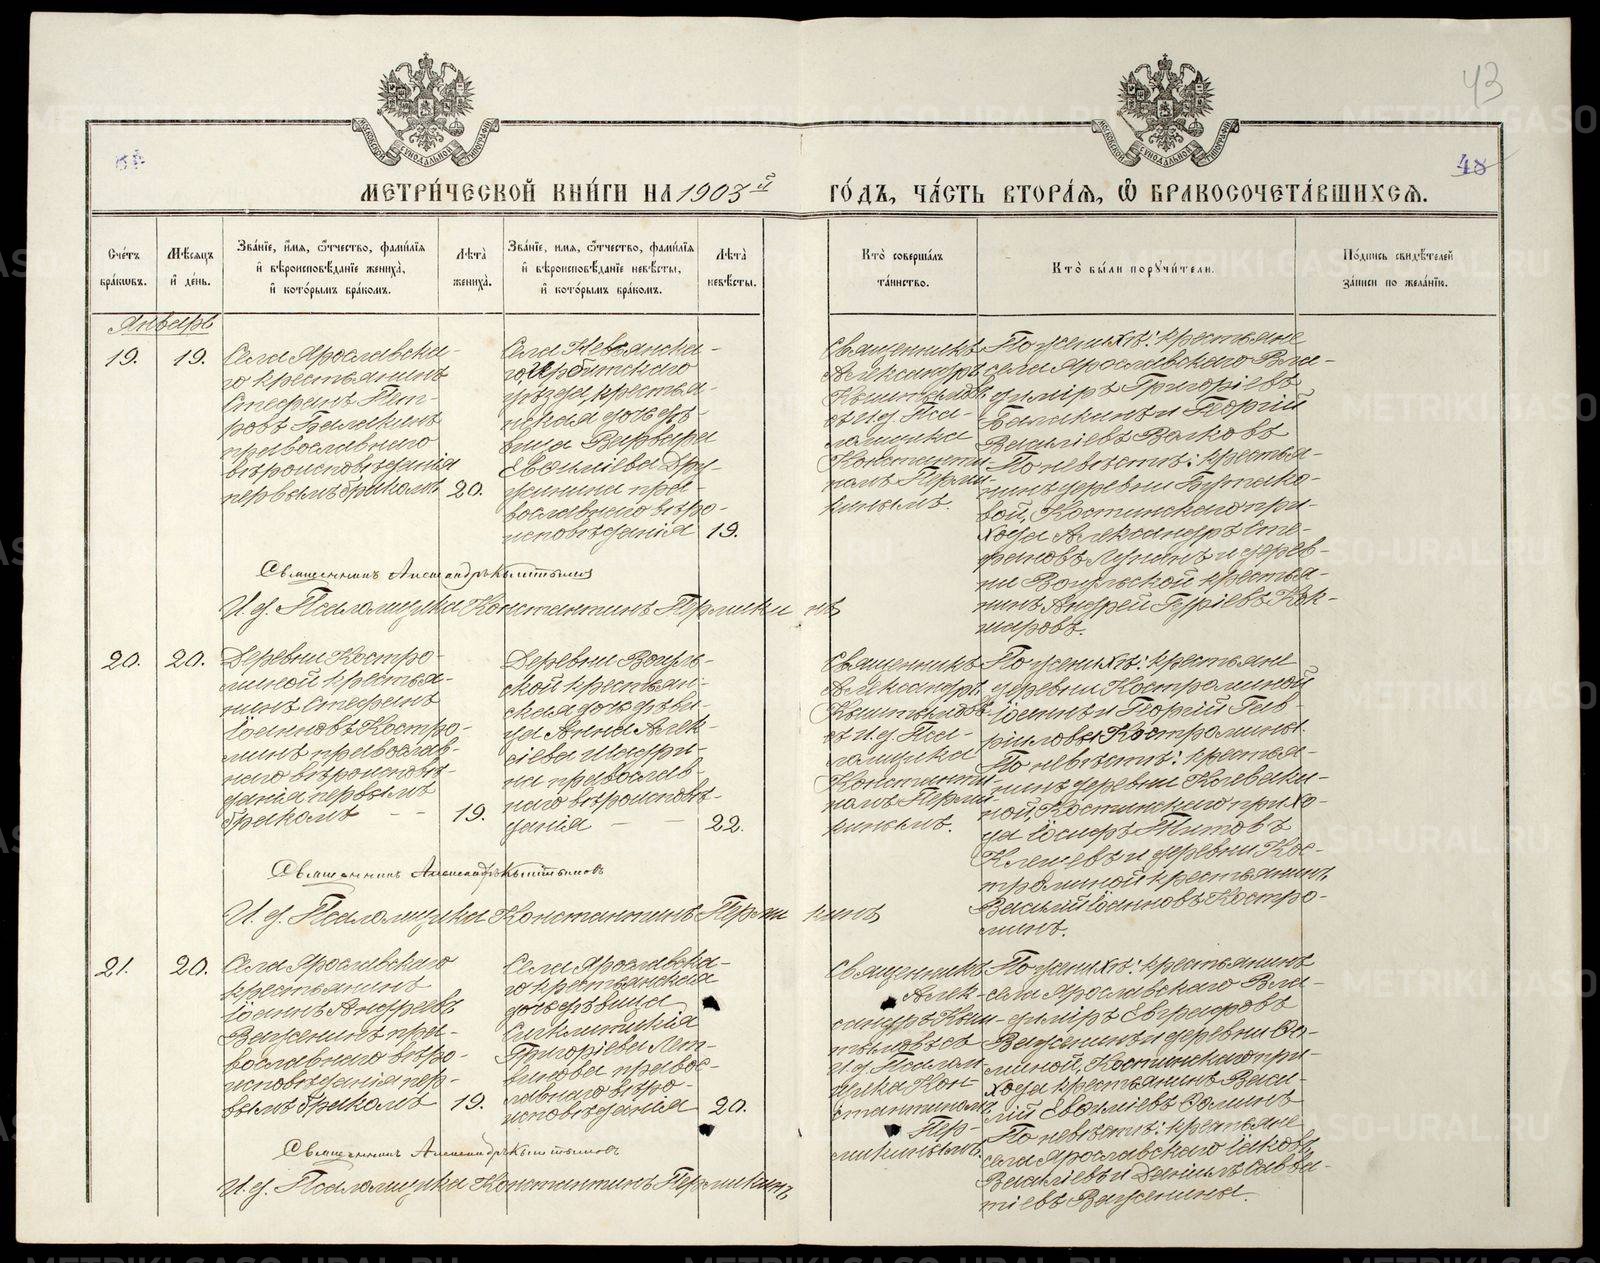 43
48
МЕТРИ́ЧЕСКОЙ КНИ́ГИ НА 1903й ГО́ДЪ, ЧА́СТЬ ВТОРА́Я, Ѿ БРАКОСОЧЕТА́ВШИХСЯ.
Сче́тъ бра́ковъ.
Мѣ́сяцъ и҆ де́нь.
Зва́нїе, и҆́мя, ѻ҆́тчество, фами́лїя
и҆ вѣроисповѣ́данїе жениха̀,
и҆ кото́рымъ бра́комъ.
Лѣ́та жениха̀.
Зва́нїе, и҆́мя, ѻ҆́тчество, фами́лїя
и҆ вѣроисповѣ́данїе невѣ́сты,
и҆ кото́рымъ бра́комъ.
Лѣ́та невѣ́сты.
Кто̀ соверша́лъ
та́инство.
Кто̀ бы́ли поручи́тели.
По́дпись свидѣ́телей
за́писи по жела́нїю.
Январь
19.
19.
Села Ярославска-
го крестьянинъ
Стефанъ Пет-
ровъ Балакинъ
православнаго
вѣроисповѣданія
первымъ бракомъ
20.
Села Невьянска-
го, Ирбитскаго
уѣзда, крестья-
нская дочь дѣ-
вица Варвара
Евфиміева Дру-
жинина пра-
вославнаго вѣро-
исповѣданія
19.
Священникъ
Александръ
Кыштымовъ
съ И.д. Пса-
ломщика
Константи-
номъ Перми-
кинымъ.
По женихѣ: крестьяне
села Ярославскаго Вла-
диміръ Григоріевъ
Балакинъ и Георгій
Василіевъ Волковъ
По невѣстѣ: крестья-
нинъ деревни Бутако-
вой, Костинскаго при-
хода Александръ Сте-
фановъ Лунинъ и дерев-
ни Вогульской крестья-
нинъ Андрей Гуріевъ Кок-
шаровъ.
Священникъ Александръ Кыштымовъ
И.д. Псаломщика Константинъ Пермикинъ
20.
20.
Деревни Костро-
миной крестья-
нинъ Стефанъ
Іоанновъ Костро-
минъ православ-
наго вѣроисповѣ-
данія первымъ
бракомъ
19.
Деревни Вогуль-
ской крестьян-
ская дочь дѣви-
ца Анна Алек-
сіева Шадри-
на православ-
наго вѣроисповѣ-
данія
22.
Священникъ
Александръ
Кыштымовъ
съ И.д. Пса-
ломщика
Константи-
номъ Перми-
кинымъ.
По женихѣ: крестьяне
деревни Костроминой
Іоаннъ и Георгій Гав-
ріиловы Костромины.
По невѣстѣ: крестья-
нинъ деревни Колваки-
ной, Костинскаго прихо-
да Іосифъ Титовъ
Клещевъ и деревни Кос-
троминой крестьянинъ
Василій Іоанновъ Костро-
минъ.
Священникъ Александръ Кыштымовъ
И.д. Псаломщика Константинъ Пермикинъ
21.
20.
Села Ярославскаго
крестьянинъ
Іоаннъ Андреевъ
Важенинъ пра-
вославнаго вѣро-
исповѣданія пер-
вымъ бракомъ
19.
Села Ярославска-
го крестьянская
дочь дѣвица
Сигклитикія
Григоріева Лит-
винова правос-
лавнаго вѣро-
исповѣданія
20.
Священникъ
Алек-
сандръ Кыш-
тымовъ съ
И.д. Псалом-
щика Кон-
стантиномъ
Пер-
микинымъ.
По женихѣ: крестьянинъ
села Ярославскаго Вла-
диміръ Евграфовъ
Важенинъ и деревни Фо-
миной, Костинскаго при-
хода крестьянинъ Васи-
лій Евфиміевъ Фоминъ
По невѣстѣ: крестьяне
села Ярославскаго Іаковъ
Василіевъ и Даніилъ Савва-
тіевъ Важенины.
Священникъ Александръ Кыштымовъ
И.д. Псаломщика Константинъ Пермикинъ
METRIKI.GASO-URAL.RU